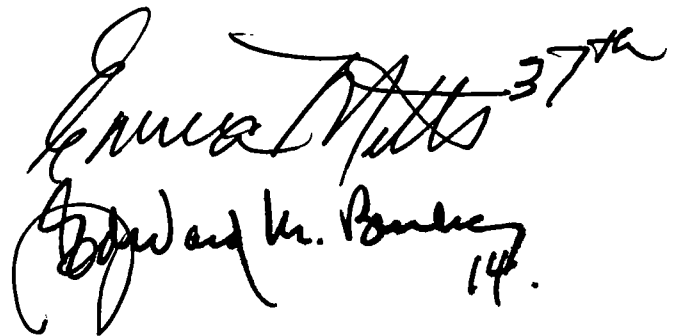 Emma Mitts 37th
Edward M. Burke
14.